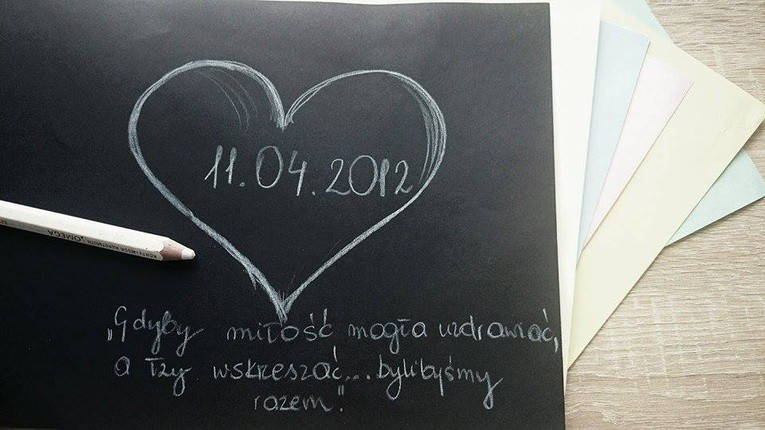 11.04.2012
„Gdyby miłość mogła uzdrawiać,
a łzy wskrzeszać...bylibyśmy
razem".
OMEGA